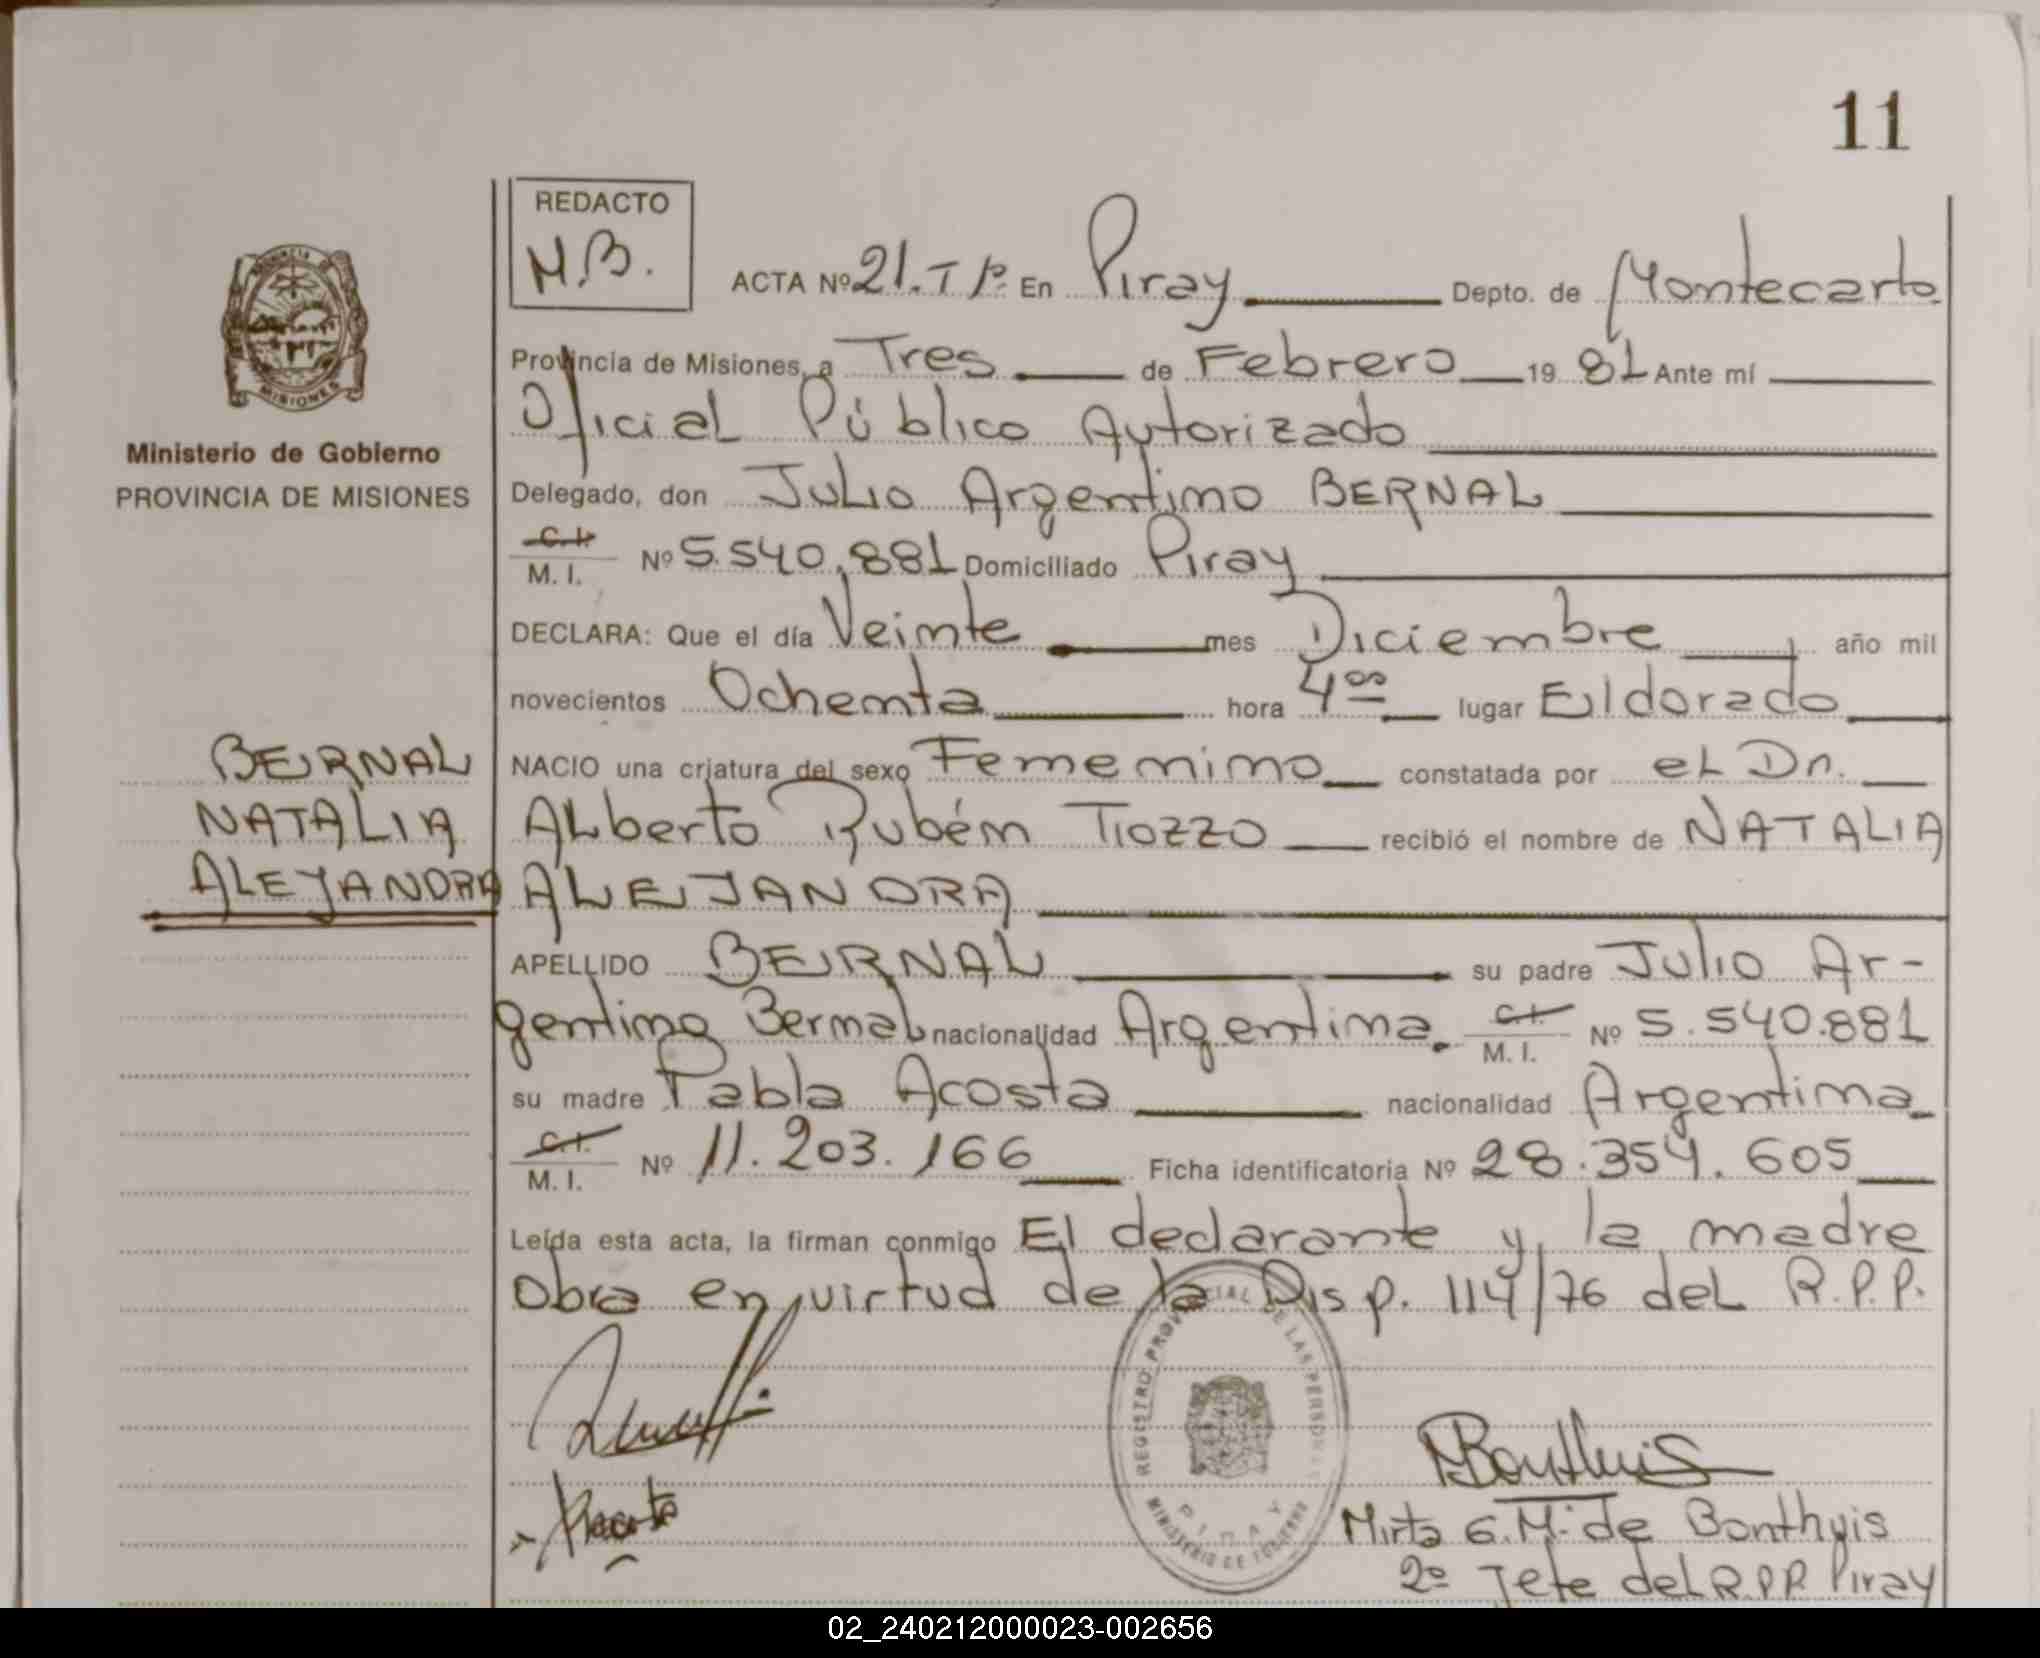 11
REDACTO
M.B.
ACTA Nº 21. Tº 1º. En Piray Depto. de Montecarlo
Provincia de Misiones, a Tres de Febrero 1981 Ante mí
Oficial Público Autorizado
Ministerio de Gobierno
PROVINCIA DE MISIONES
Delegado, don Julio Argentino BERNAL
C.I. M. I. Nº 5.540.881 Domiciliado Piray
DECLARA: Que el día Veinte mes Diciembre año mil
novecientos Ochenta hora 4ºº lugar Eldorado
BERNAL
NATALIA
ALEJANDRA
NACIO una criatura del sexo Femenino constatada por el Dr.
Alberto Rubén Tiozzo recibió el nombre de NATALIA
ALEJANDRA
APELLIDO BERNAL su padre Julio Ar-
gentino Bernal nacionalidad Argentina. C.I. M. I. Nº 5.540.881
su madre Pabla Acosta nacionalidad Argentina
C.I. M. I. Nº 11.203.166 Ficha identificatoria Nº 28.354.605
Leída esta acta, la firman conmigo El declarante y la madre
Obra en virtud de la Disp. 114/76 del R.P.P.
REGISTRO PROVINCIAL DE LAS PERSONAS
PIRAY
MINISTERIO DE GOBIERNO
MBonthuis
Mirta G.M. de Bonthuis
2º Jefe del R.P.P. Piray
02_240212000023-002656